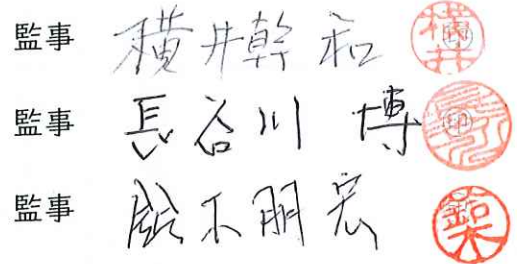 監事 横井幹和 ㊞
監事 長谷川 博 ㊞
監事 鈴木朋宏